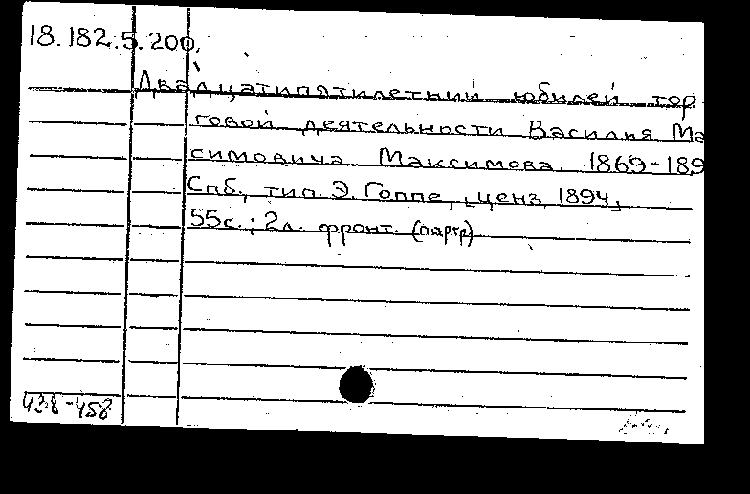 18.182.5.200.
Двадцатипятилетний юбилей тор
говой деятельности Василия Ма
симовича Максимова 1869-189
Спб., тип. Э. Гоппе, ценз. 1894,
55с.; 2л. фронт. (портр)
438-458